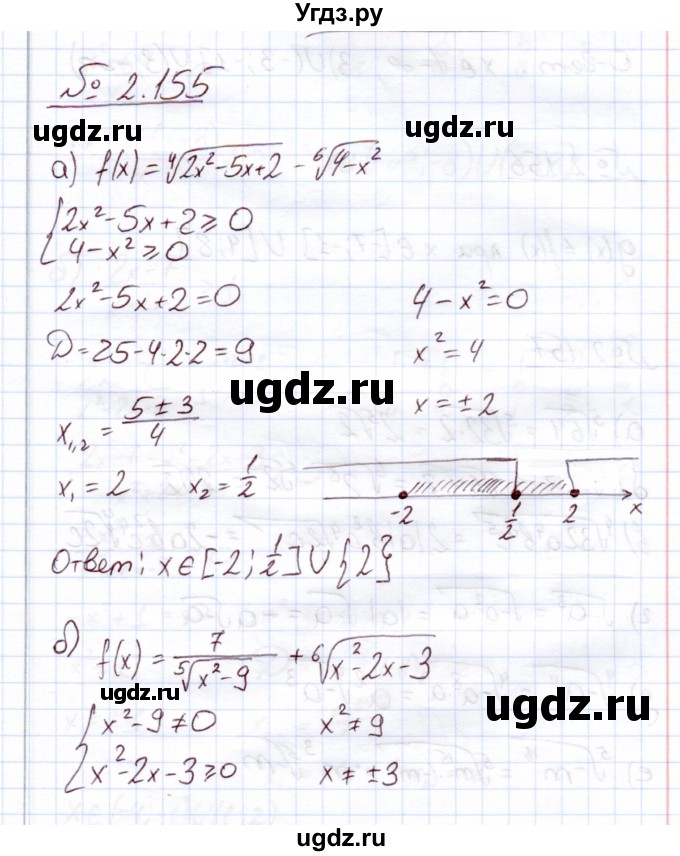 Угдз.ру
№ 2.155
ugdz.ru ugdz.ru
а) f(x) = ⁴√(2x²-5x+2) - ⁶√(4-x²)
{2x²-5x+2 ≥ 0
{4-x² ≥ 0
2x²-5x+2=0 4-x²=0
Д=25-4·2·2=9 x²=4
ugdz.ru
x₁,₂ = (5±3)/4 x=±2
x₁=2 x₂=1/2
-2 1/2 2 x
Ответ: x∈[-2; 1/2]∪{2}
б) f(x) = 7/⁵√(x²-9) + ⁶√(x²-2x-3)
ugdz.ru
ugdz.ru ugdz.ru
{x²-9≠0 x²≠9
{x²-2x-3≥0 x≠±3
ugdz.ru